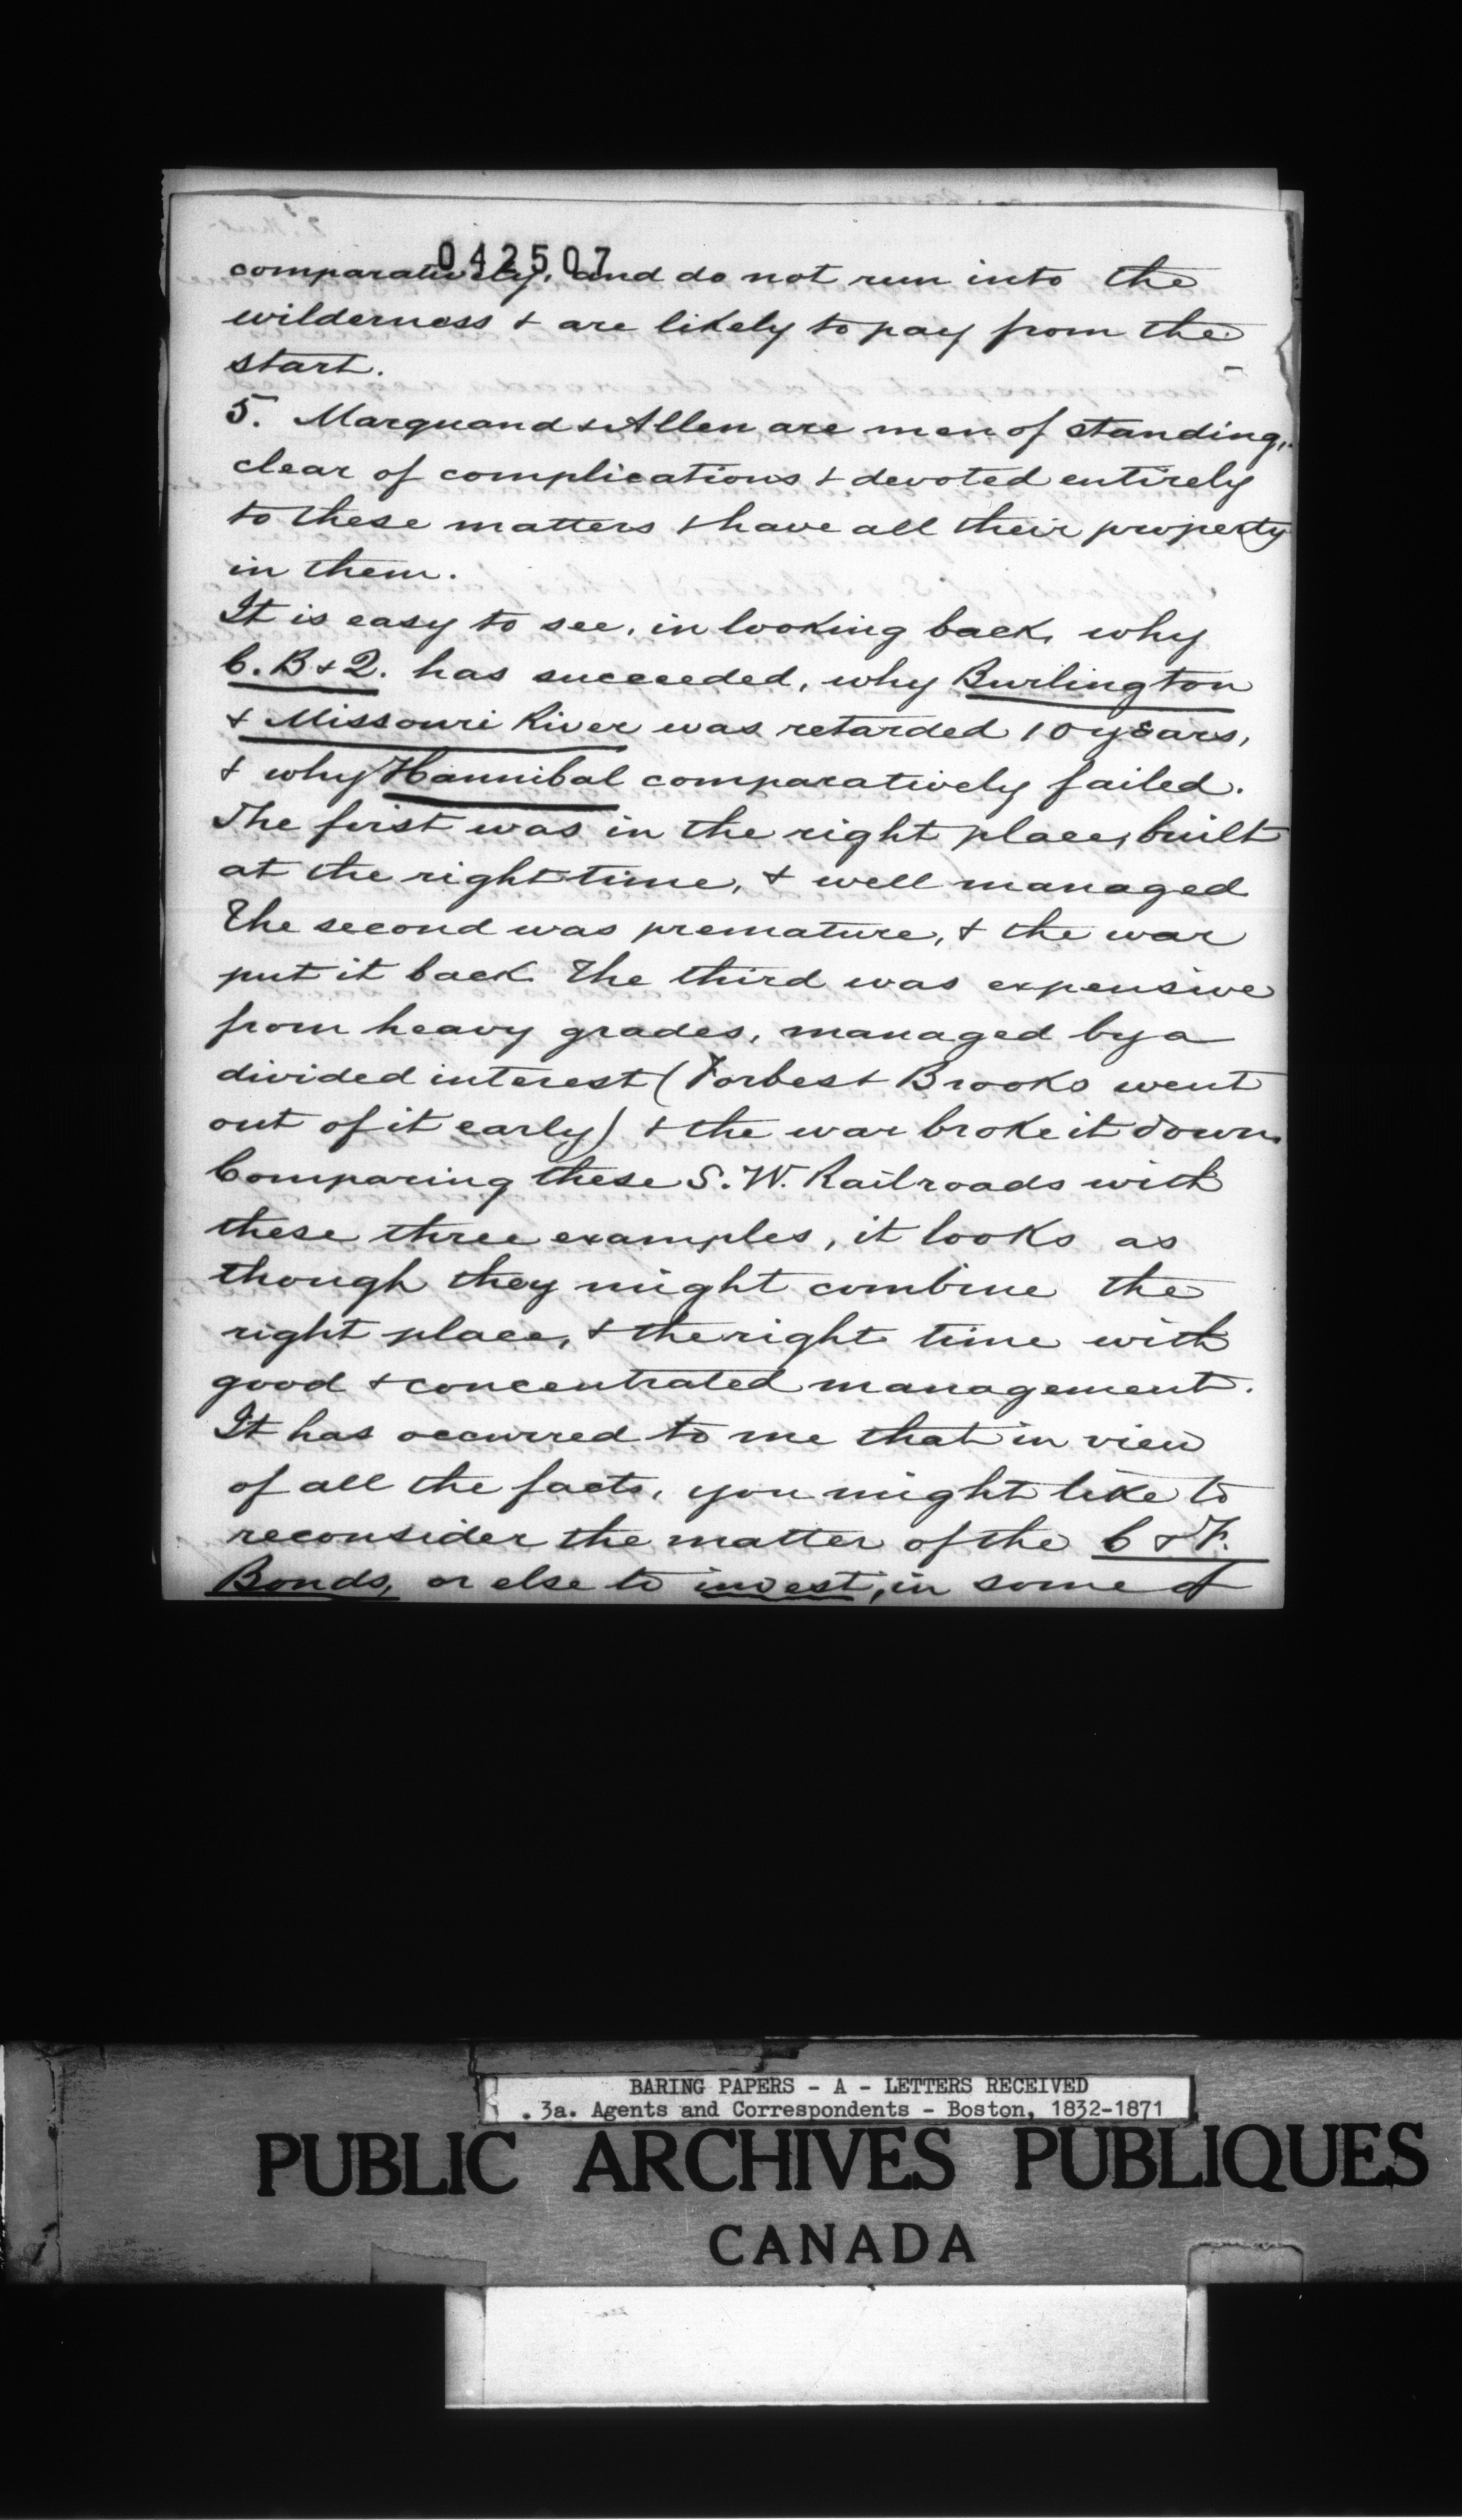 042507
comparatively, and do not run into the
wilderness & are likely to pay from the
start.
5. Marquand & Allen are men of standing,
clear of complications & devoted entirely
to these matters & have all their property
in them.
It is easy to see, in looking back, why
C. B & Q. has succeeded, why Burlington
& Missouri River was retarded 10 years,
& why Hannibal comparatively failed.
The first was in the right place, built
at the right time, & well managed
The second was premature, & the war
put it back. The third was expensive
from heavy grades, managed by a
divided interest (Forbes & Brooks went
out of it early) & the war broke it down.
Comparing these S. W. Railroads with
these three examples, it looks as
though they might combine the
right place, & the right time with
good & concentrated management.
It has occurred to me that in view
of all the facts, you might like to
reconsider the matter of the C & F.
Bonds, or else to invest, in some of
BARING PAPERS - A - LETTERS RECEIVED
. 3a. Agents and Correspondents - Boston, 1832-1871
PUBLIC ARCHIVES PUBLIQUES
CANADA